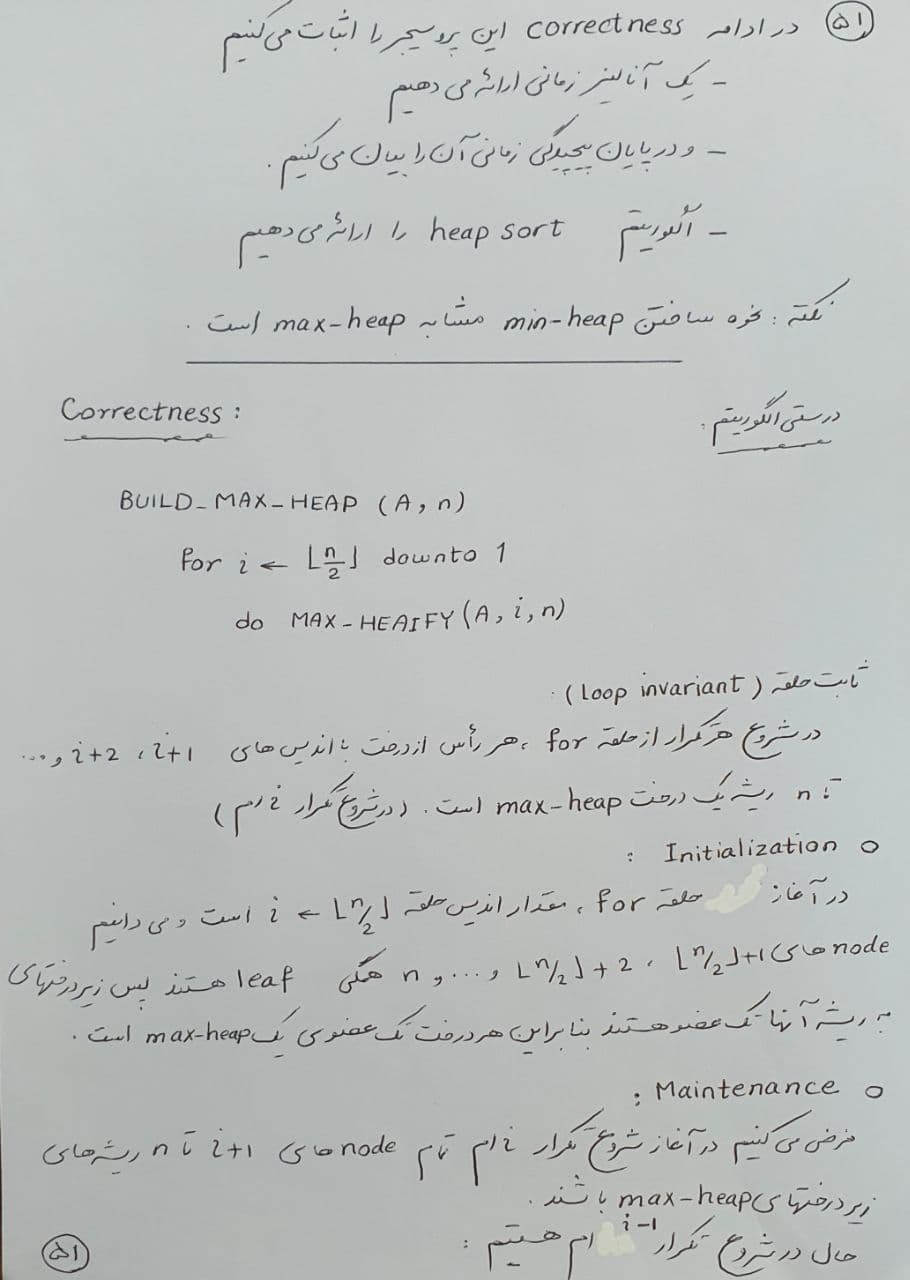 ۵۱ در ادامه correctness این پروسیجر را اثبات می‌کنیم
– یک آنالیز زمانی ارائه می دهیم
– و در پایان پیچیدگی زمانی آن را بیان می‌کنیم .
– الگوریتم heap sort را ارائه می دهیم
نکته : نحوه ساختن min-heap مشابه max-heap است .
Correctness : درستی الگوریتم :
BUILD_MAX-HEAP (A, n)
for i ← ⌊n/2⌋ downto 1
do MAX-HEAIFY(A, i, n)
ثابت حلقه (loop invariant) :
در شروع هر تکرار از حلقه for ، هر رأس از درخت با اندیس های i+1 ، i+2 و ...
تا n ریشه یک درخت max-heap است . (در شروع تکرار i ام)
○ Initialization :
در آغاز حلقه for ، مقدار اندیس حلقه i ← ⌊n/2⌋ است و می دانیم
node های ⌊n/2⌋+1 ، ⌊n/2⌋+2 و ... و n همگی leaf هستند پس زیردرختهای
به ریشه آنها تک عضو هستند بنابراین هر درخت تک عضوی یک max-heap است .
○ Maintenance :
فرض می کنیم در آغاز شروع تکرار i ام تمام node های i+1 تا n ریشه های
زیر درختهای max-heap باشند .
حال در شروع تکرار i-1 ام هستیم :
۵۱